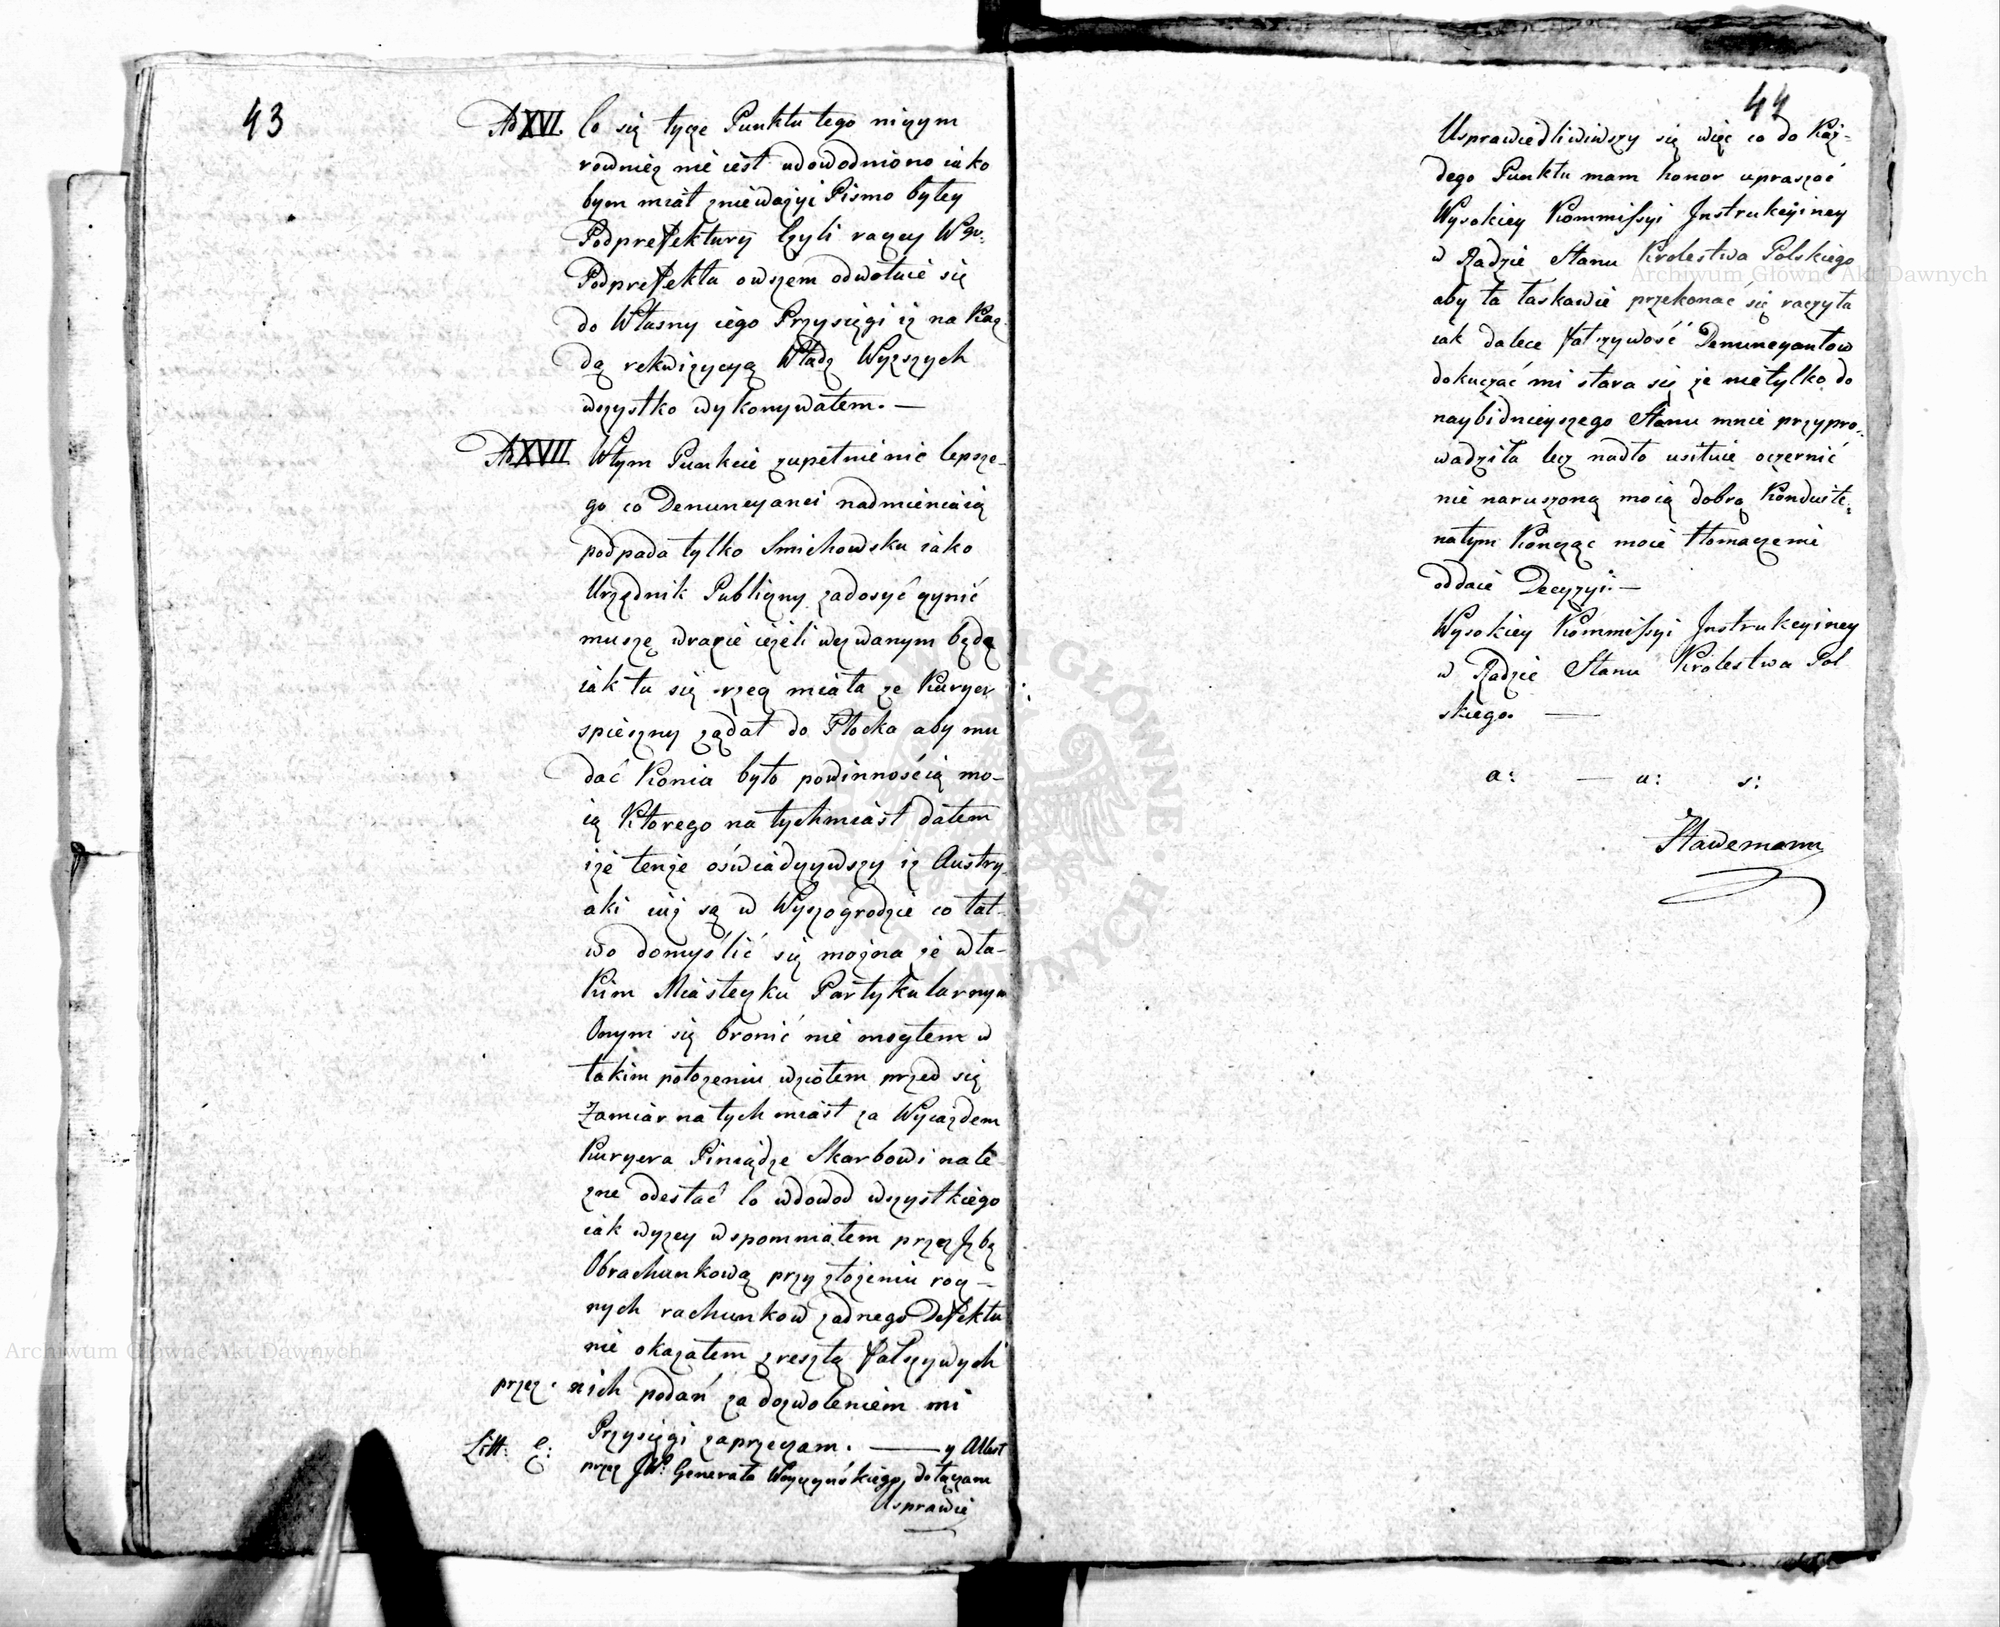 43
Ad XVI. Co się tycze Punktu tego niczym
rowniez nie iest udowodniono iako
bym miał zniewazyć Pismo byłey
Podprefektury Czyli raczey Wgo.
Podprefekta owszem odwołuie się
do Własny iego Przysięgi iz na Kaz-
dą rekwizycyą Władz Wyzszych
wszystko wykonywałem. —
Ad XVII Wtym Punkcie zupełnie nic lepsze-
go co Denuncyanci nadmieniaią
podpada tylko Smichowsku iako
Urzędnik Publiczny zadosyć czynić
muszę wrazie iezeli wezwanym będę
iak tu się rzecz miała ze Kuryer
spieszny ządał do Płocka aby mu
dać Konia było powinnością mo-
ią Ktorego natychmiast dałem
iże tenze oświadczywszy iz Austry-
aki iuż są w Wyszogrodzie co łat-
wo domyślić się mozna ze wta-
Kim Miasteczku Partykularnym
Onym się bronić nie mogłem w
takim połozeniu wziołem przed się
Zamiar natychmiast za Wyiazdem
Kuryera Piniądze Skarbowi nale-
zne odesłać Co wdowod wszystkiego
iak wyzey wspomniałem przez Jzbę
Obrachunkową przy złozeniu rocz-
nych rachunkow zadnego Defektu
nie okazałem zresztą fałszywych
przez nich podań za dozwoleniem mi
Przysięgi zaprzeczam. — y Attest
Litt: C: przez JW. Generała Woyczyńskiego dołączam
Usprawie
44
Usprawiedliwiwszy się więc co do Kaz-
dego Punktu mam honor upraszać
Wysokiey Kommissyi Jnstrukcyiney
w Radzie Stanu Krolestwa Polskiego
aby ta łaskawie przekonać się raczyła
iak dalece fałszywość Denuncyantow
dokuczać mi stara się ze nietylko do
naybidnieyszego Stanu mnie przypro-
wadziła lecz nadto usiłuie oczernić
nie naruszoną moią dobrą Konduitę
natym Koncząc moie tłomaczenie
oddaie Decyzyi. —
Wysokiey Kommissyi Jnstrukcyiney
w Radzie Stanu Krolestwa Pol
skiego. —
a: — u: s:
Stawemann
Archiwum Główne Akt Dawnych
Archiwum Główne Akt Dawnych